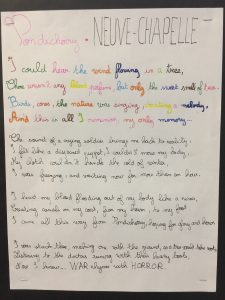 Pondicherry - NEUVE-CHAPELLE
I could hear the wind flowing in a tree,
There wasn't any blood perfume, but only the sweet smell of tea.
Birds, cows, the nature was singing, creating a melody,
And this is all I summon my only memory...
The sound of a crying soldier bring me back to reality.
I felt like a disguised puppet, I couldn't move my body.
My cloth couldn't handle the cold of winter
I was freezing, and waiting now for more than an hour.
I hear my blood flooding out of my body like a river,
Creating canals on my coat, from my heart, to my foot
I came all this way from Pondicherry, hoping for glory and honor
I was stuck there melting one with the ground, and tree could take roots,
Listening to the doctors singing with their heavy boots,
Now I know... WAR rhymes with HORROR.